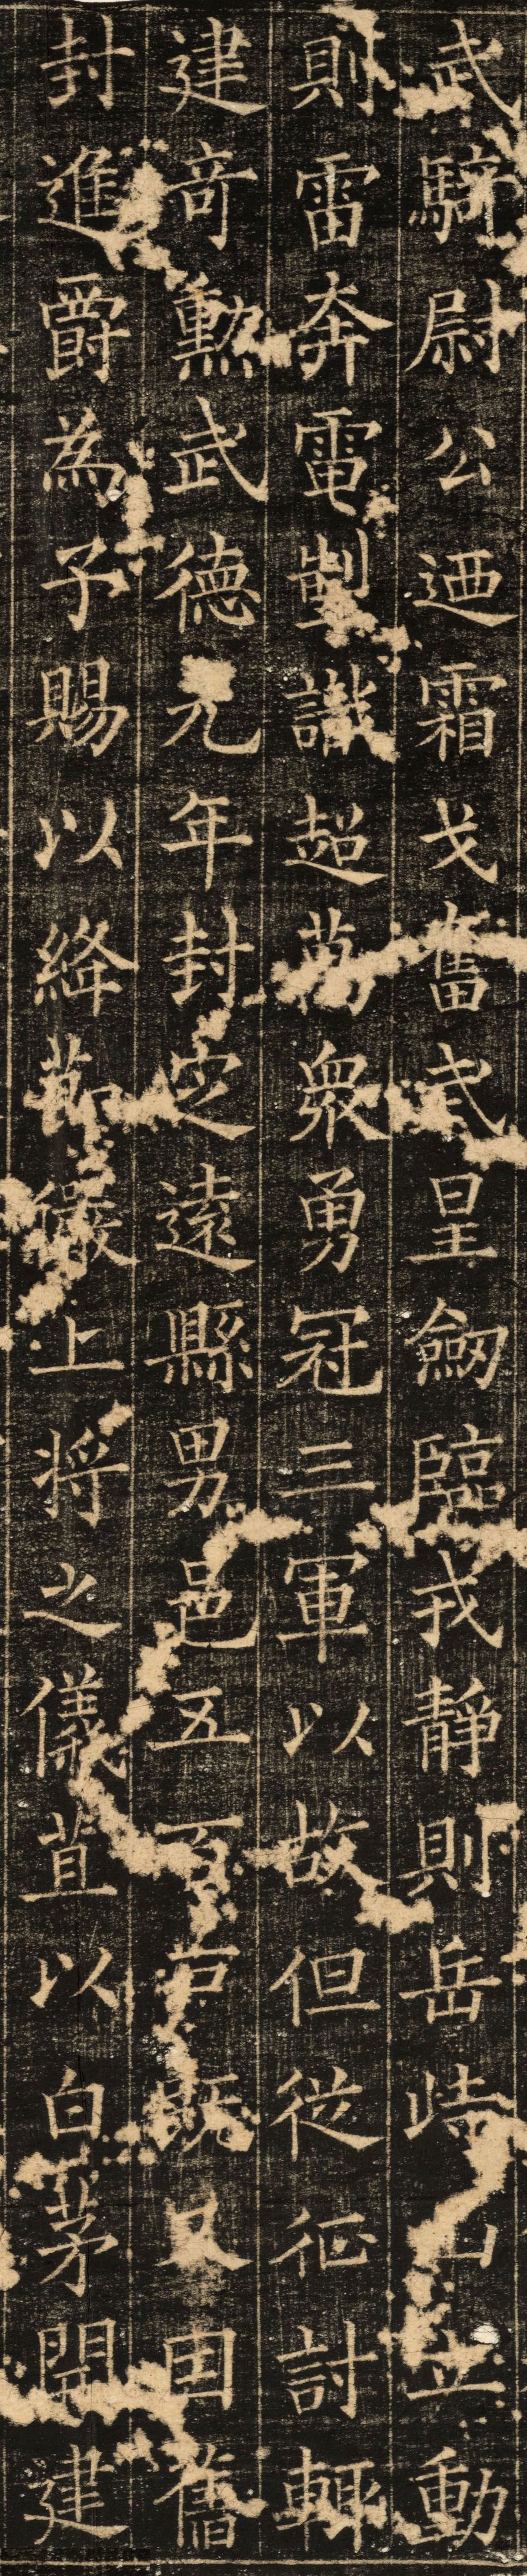 武騎尉公迺霜戈奮武星劒臨戎靜則岳峙山立動
則雷奔電制識超萬衆勇冠三軍以故但從征討輒
建奇勳武德元年封定遠縣男邑五百戶既又因舊
封進爵為子賜以絳節儼上将之儀苴以白茅開建